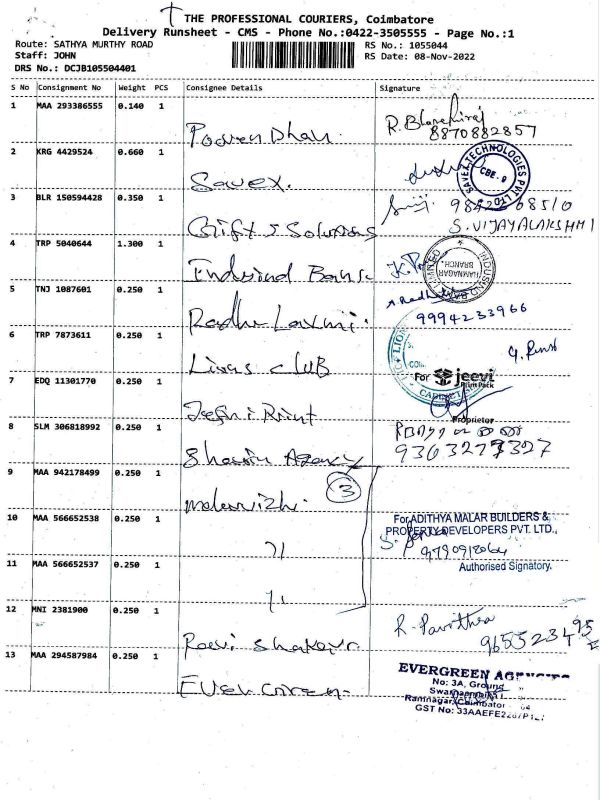 THE PROFESSIONAL COURIERS, Coimbatore
Delivery Runsheet - CMS - Phone No.:0422-3505555 - Page No.:1
Route: SATHYA MURTHY ROAD
RS No.: 1055044
Staff: JOHN
RS Date: 08-Nov-2022
DRS No.: DCJB105504401
S No Consignment No Weight PCS Consignee Details Signature
1 MAA 293386555 0.140 1
8870882857
2 KRG 4429524 0.660 1 Savex.
SAVEX TECHNOLOGIES PVT. LTD. CBE-9
3 BLR 150594428 0.350 1 Gift Solutions
S. VIJAYALAKSHMI
4 TRP 5040644 1.300 1 Indusind Bank
INDUSIND BANK LIMITED RAMNAGAR BRANCH.
5 TNJ 1087601 0.250 1 Radhu Laxmi.
9994233966
6 TRP 7873611 0.250 1 Lions cLUB
7 EDQ 11301770 0.250 1
For jeevi Print Pack
Proprietor
8 SLM 306818992 0.250 1 Agency
9363277327
9 MAA 942178499 0.250 1 malarvizhi.
3
10 MAA 566652538 0.250 1
For ADITHYA MALAR BUILDERS &
PROPERTY DEVELOPERS PVT. LTD.,
Authorised Signatory.
11 MAA 566652537 0.250 1
12 MNI 2381900 0.250 1 Ravi Shakar.
R. Pavithra
13 MAA 294587984 0.250 1 Ever Green
EVERGREEN AGENCIES
No: 3A, Ground
Ramnagar, Coimbatore